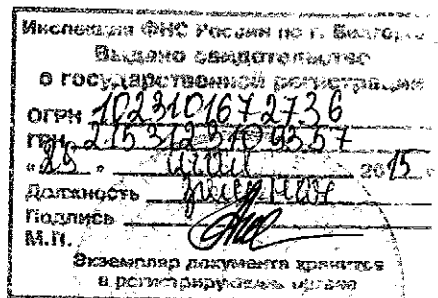 Инспекция ФНС России по г. Белгор
Выдано свидетельство
о государственной регистрации
ОГРН 1023101672736
ГРН 2153123109357
"29" июля 2015 г
Должность
Подпись
М.П.
Экземпляр документа хранится
в регистрирующем органе